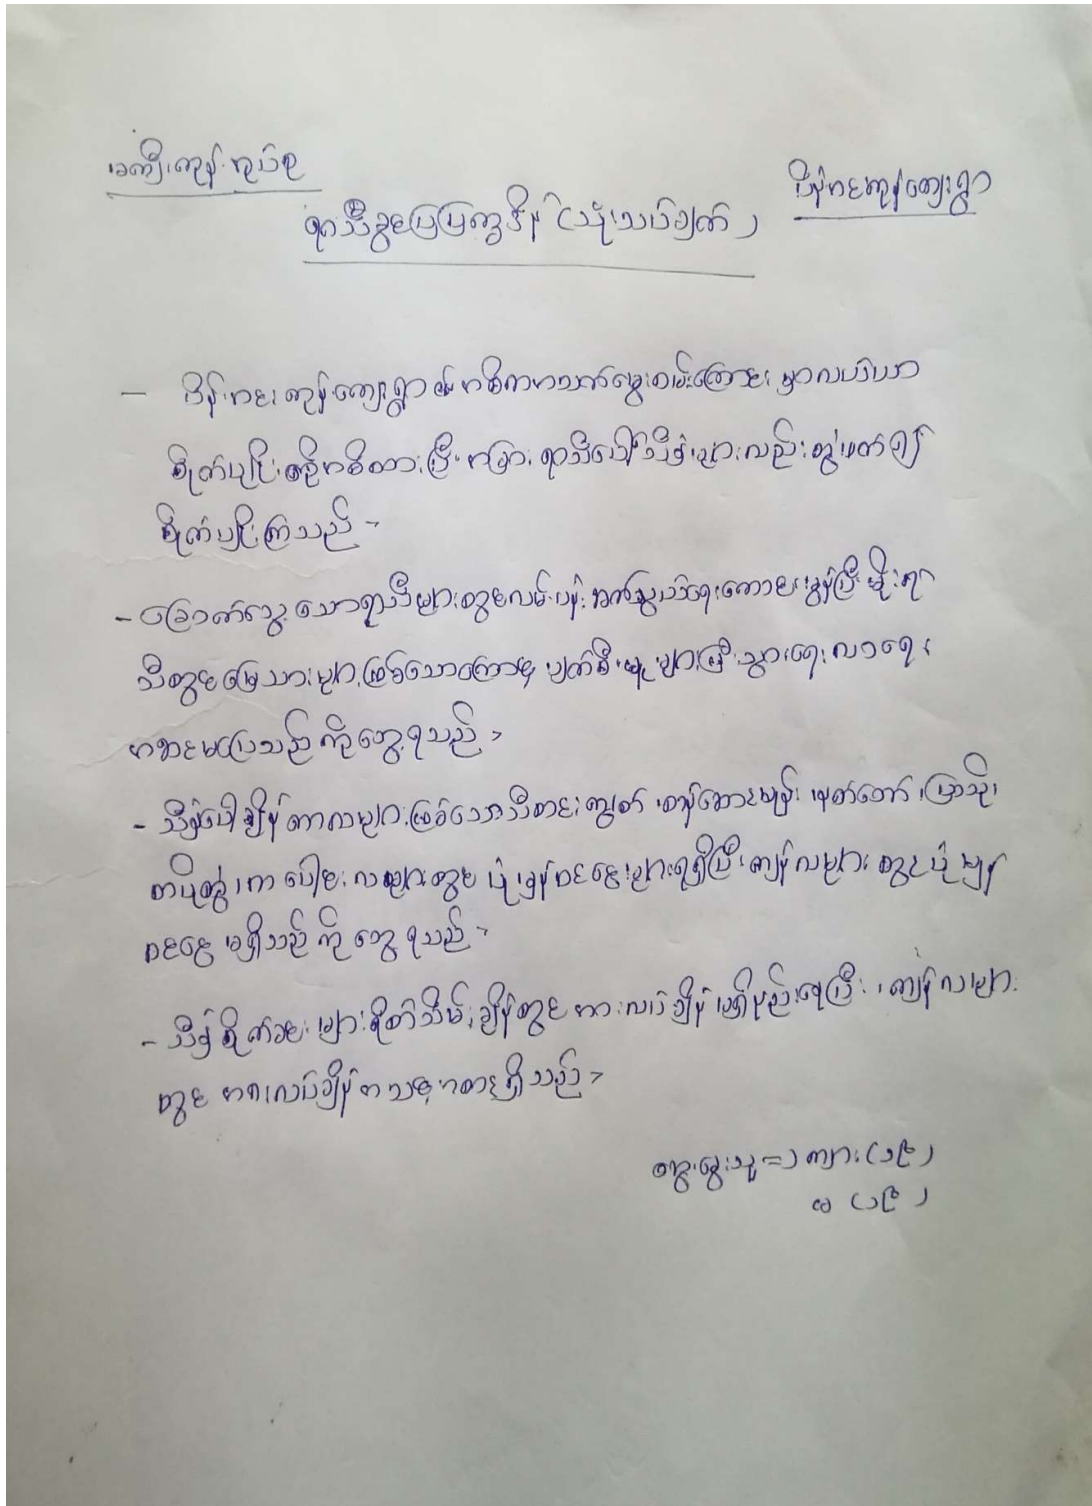 ခကျီးကုန်းအုပ်စု
ပိန်းငေးကုန်းကျေးရွာ
ရာသီခွင်ပြပြက္ခဒိန် (သုံးသပ်ချက်)
- ကုန်းကျေးရွာ၏ အဓိကအသက်မွေးဝမ်းကြောင်းမှာလယ်ယာ
စိုက်ပျိုးအဓိကထားပြီး အခြားရာသီပေါ်သီးနှံများလည်းတွဲဖက်၍
စိုက်ပျိုးကြသည်။
- ခြောက်သွေ့သောရာသီများတွင်လမ်းပန်းဆက်သွယ်ရေးကောင်းမွန်ပြီး မိုးရာ
သီတွင်မြေသားများဖြစ်သောကြောင့် ပျက်စီးမှုများပြီးသွားရေးလာရေး
အဆင်မပြေသည်ကိုတွေ့ရသည်။
- သီးနှံပေါ်ချိန်ကာလများဖြစ်သောသီတင်းကျွတ်၊ တန်ဆောင်မုန်း၊ နတ်တော်၊ ပြာသို၊
တပို့တွဲ၊ တပေါင်းလများတွင် ပုံမှန်ဝင်ငွေများရရှိပြီးကျန်လများတွင်ပုံမှန်
ဝင်ငွေမရှိသည်ကိုတွေ့ရသည်။
- သီးနှံစိုက်ခင်းများရိတ်သိမ်းချိန်တွင်အားလပ်ချိန်မရှိ ကျန်လများ
တွင် အားလပ်ချိန်အသင့်အတင့်ရှိသည်။
ဆွေးနွေးသူ => ကျား (၁၉)
မ (၁၉)